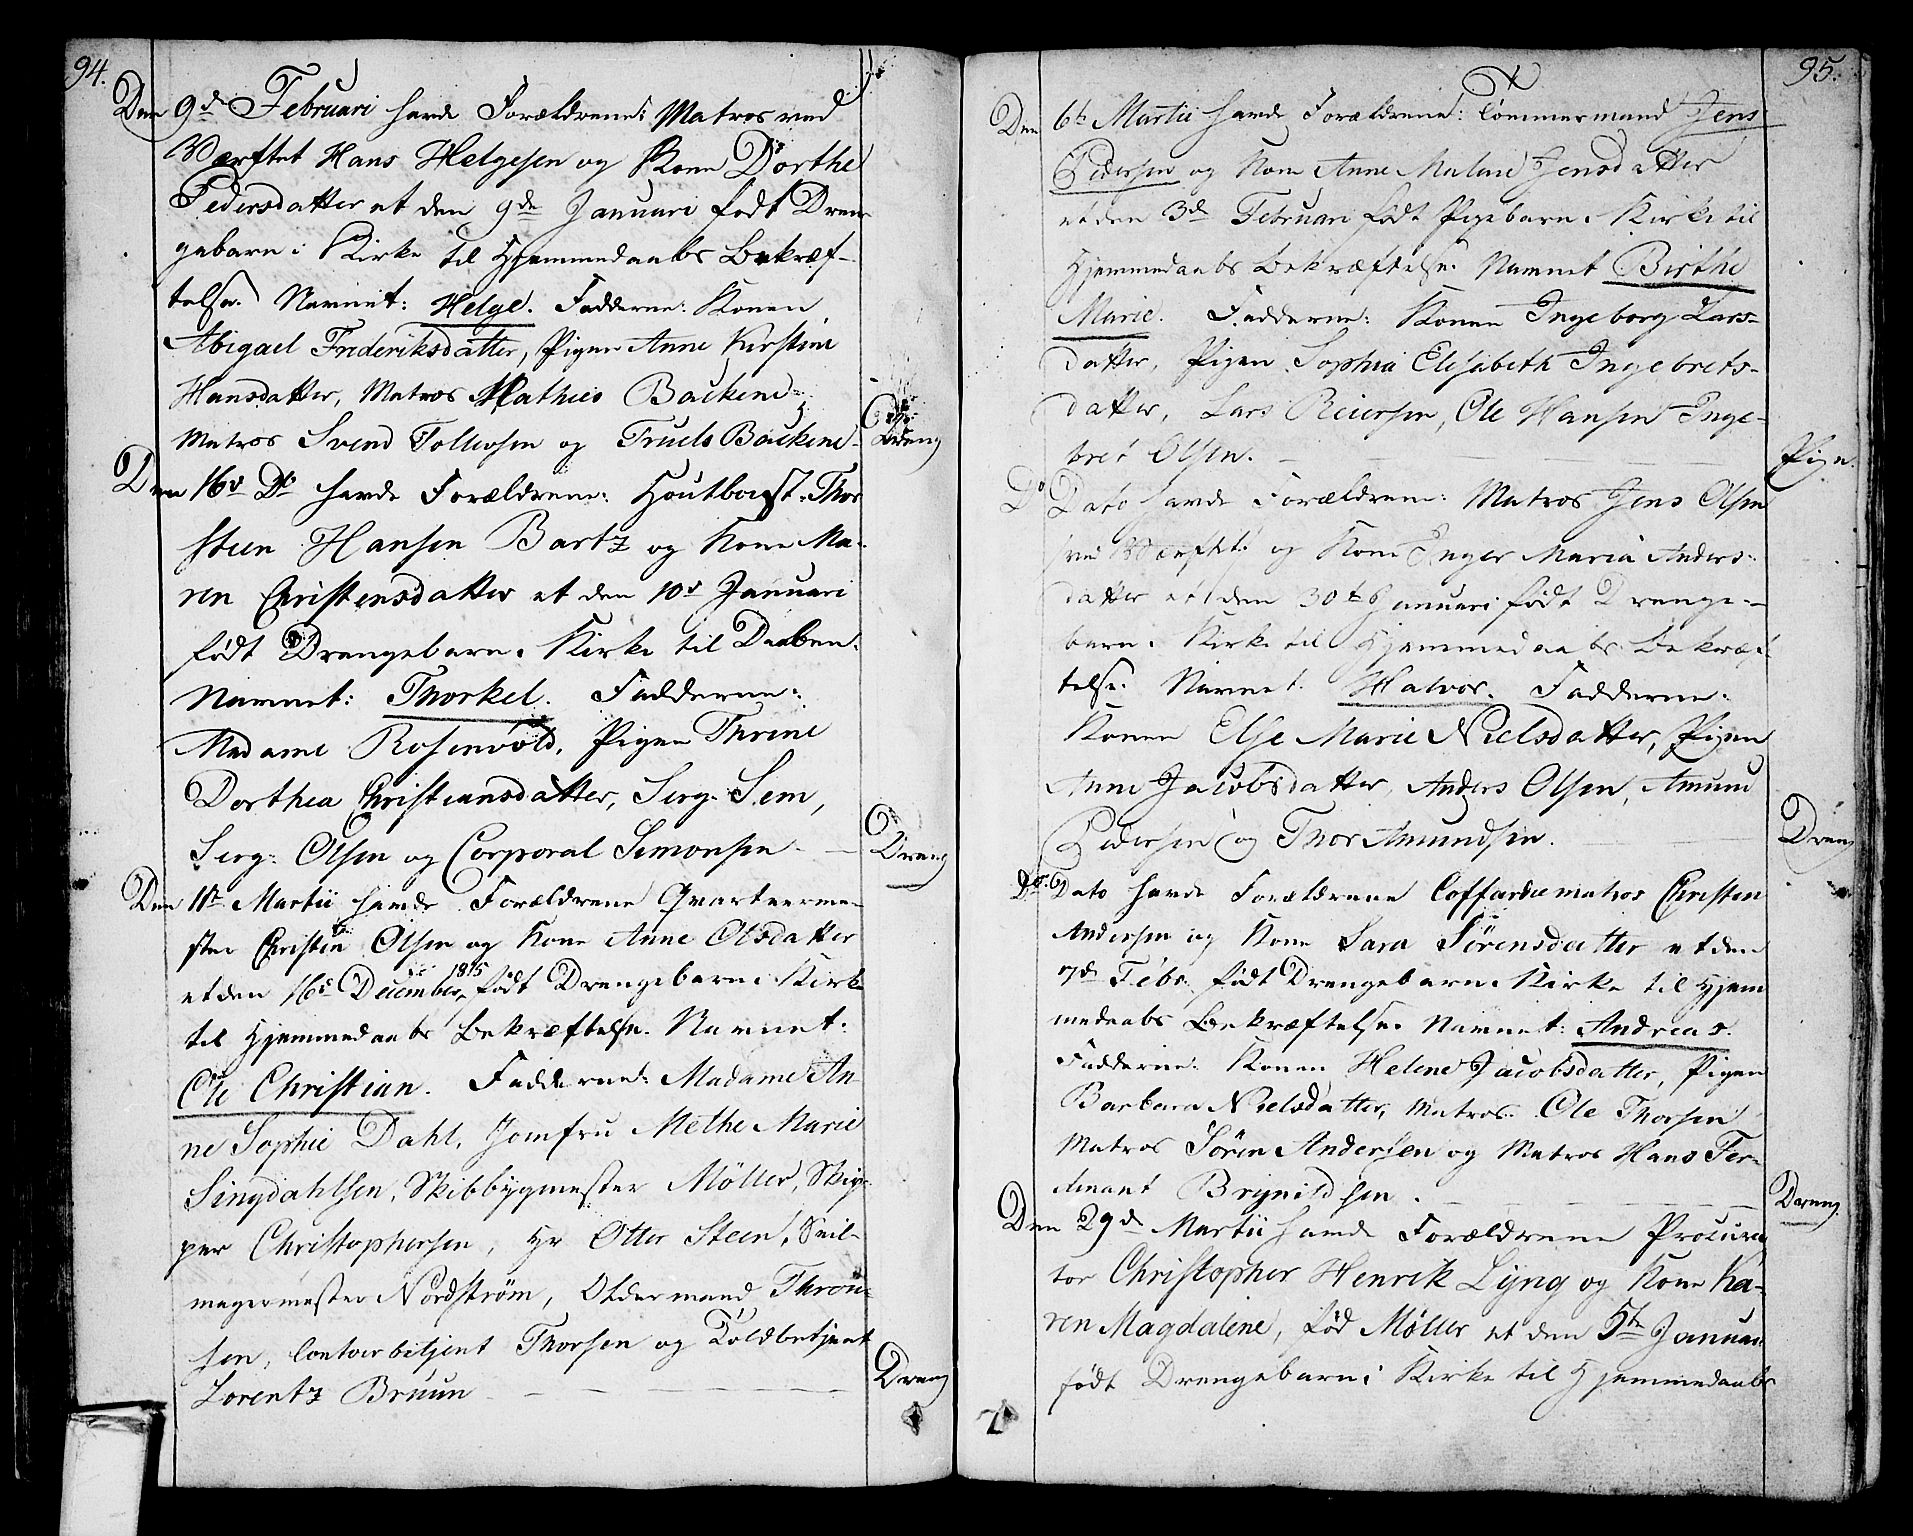 94.
Den 9de Februari havde Forældrene: Matros ved
Værftet Hans Helgesen og Kone Dorthe
Pedersdatter et den 9de Januari født Dren-
gebarn i Kirke til Hjemmedaabs Bekræf-
telse. Navnet: Helge. Fadderne: Konen
Abigael Frideriksdatter, Pigen Anne Kirstine
Hansdatter, Matros Mathies Backene
Matros Svend Tollevsen og Truels Backene
Dreng
Den 16de Do havde Forældrene: Houtboist Thor
steen Hansen Bartz og Kone Ma-
ren Christensdatter et den 10de Januari
født Drengebarn i Kirke til Daaben.
Navnet: Thorkel. Fadderne:
Madame Rosenvold, Pigen Thrine
Dorthea Christiansdatter, Serg. Sem,
Serg: Olsen og Corporal Simonsen
Dreng
Den 11te Martii havde Forældrene Qvarteerme-
ster Christen Olsen og Kone Anne Olsdatter
et den 16de December 1815 født Drengebarn i Kirke
til Hjemmedaabs Bekræftelse. Navnet:
Ole Christian. Fadderne: Madame An-
ne Sophie Dahl, Jomfru Methe Marie
Singdahlsen, Skibbygmester Møller, Skip-
per Christophersen, Hr Otter Steen, Seil-
magermester Nordstrøm, Oldermand Thron-
sen, Contoirbetjent Thorsen og Toldbetjent
Lorentz Bruun
Dreng
95.
Den 6te Martii havde Forældrene: Tømmermand Jens
Pedersen og Kone Anne Malene Jensdatter
et den 3de Februari født Pigebarn i Kirke til
Hjemmedaabs Bekræftelse. Navnet Birthe
Marie. Fadderne: Konen Ingeborg Lars-
datter, Pigen Sophia Elisabeth Ingebrets-
datter, Lars Reiersen, Ole Hansen Inge-
bret Olsen.
Pige.
Do Dato havde Forældrene: Matros Jens Olsen
ved Værftet og Kone Inger Maria Anders-
datter et den 30te Januari født Drenge-
barn i Kirke til Hjemmedaabs Bekræf-
telse. Navnet. Halvor. Fadderne:
Konen Else Marie Nielsdatter, Pigen
Anne Jacobsdatter, Anders Olsen, Amund
Pedersen og Thor Amundsen.
Dreng
Do Dato havde Forældrene Coffardiematros Christen
Andersen og Kone Sara Sørensdatter et den
7de Febr. født Drengebarn i Kirke til Hjem
medaabs Bekræftelse. Navnet: Andreas.
Fadderne: Konen Helene Jacobsdatter, Pigen
Barbara Nielsdatter, Matros Ole Thorsen
Matros Søren Andersen og Matros Hans Fer-
dinant Brynildsen.
Dreng.
Den 29de Martii havde Forældrene Procura
tor Christopher Henrik Lyng og Kone Ka-
ren Magdalene, fød Møller et den 5te Januari
født Drengebarn i Kirke til Hjemmedaabs